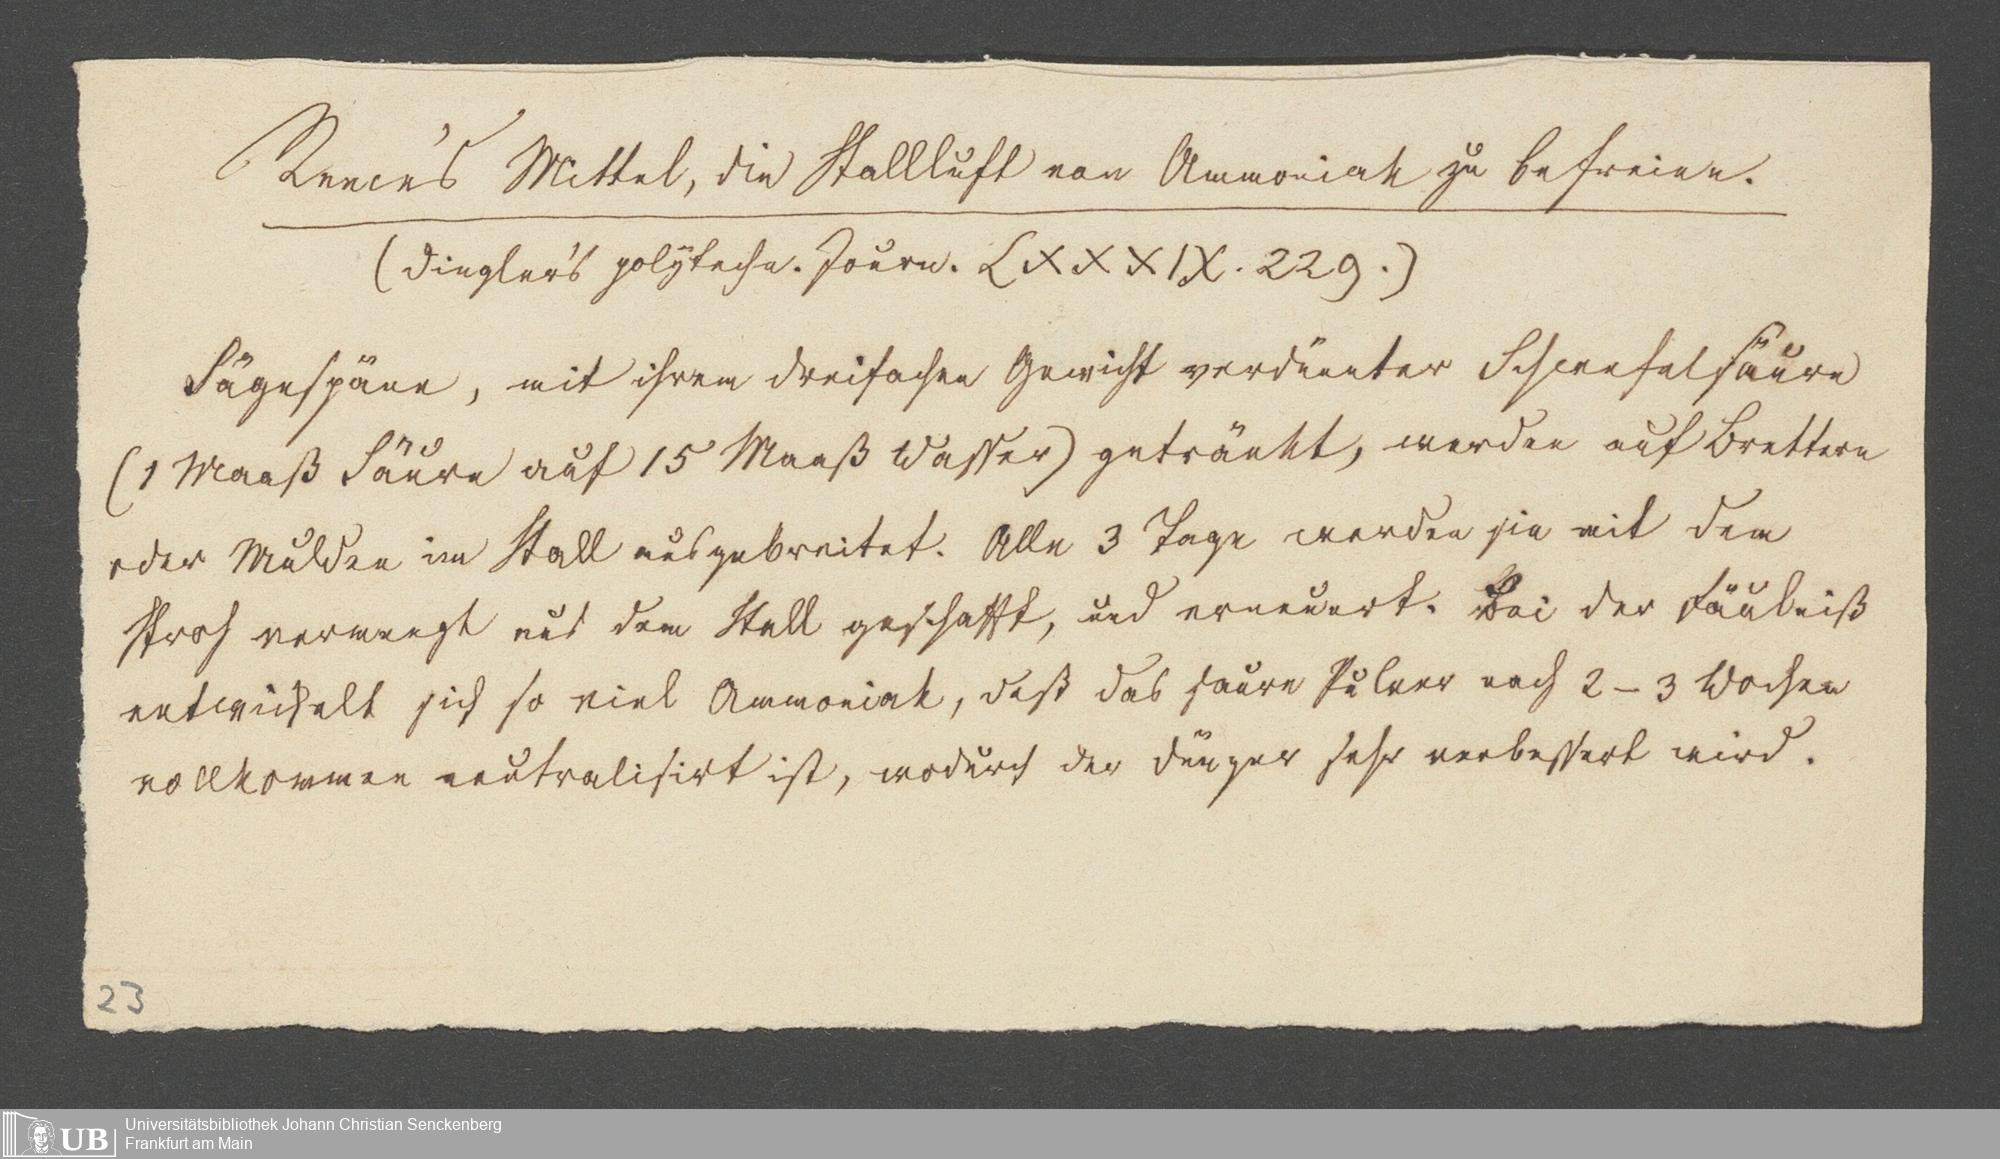 Reece's Mittel, die Stallluft von Ammoniak zu befreien.
(Dingler's polytechn. Journ. LXXXIX. 229.)
Sägespäne, mit ihrem dreifachen Gewicht verdünnter Schwefelsäure
(1 Maaß Säure auf 15 Maaß Wasser) getränkt, werden auf Brettern
oder Mulden im Stall ausgebreitet. Alle 3 Tage werden sie mit dem
Stroh vermengt aus dem Stall geschafft, und erneuert. Bei der Fäulniß
entwickelt sich so viel Ammoniak, daß das saure Pulver nach 2–3 Wochen
vollkommen neutralisirt ist, wodurch der Dünger sehr verbessert wird.
23
UB Universitätsbibliothek Johann Christian Senckenberg
Frankfurt am Main